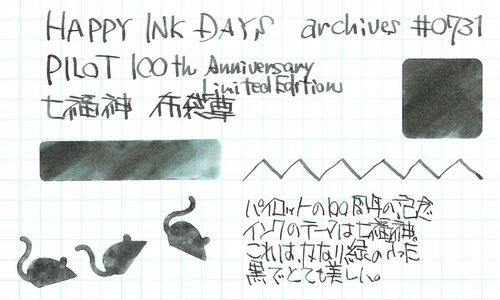 HAPPY INK DAYS archives #0731
PILOT 100th Anniversary
Limited Edition
七福神 布袋尊
パイロットの100周年の記念
インクのテーマは七福神。
これは、かなり緑の入った
黒でとても美しい。